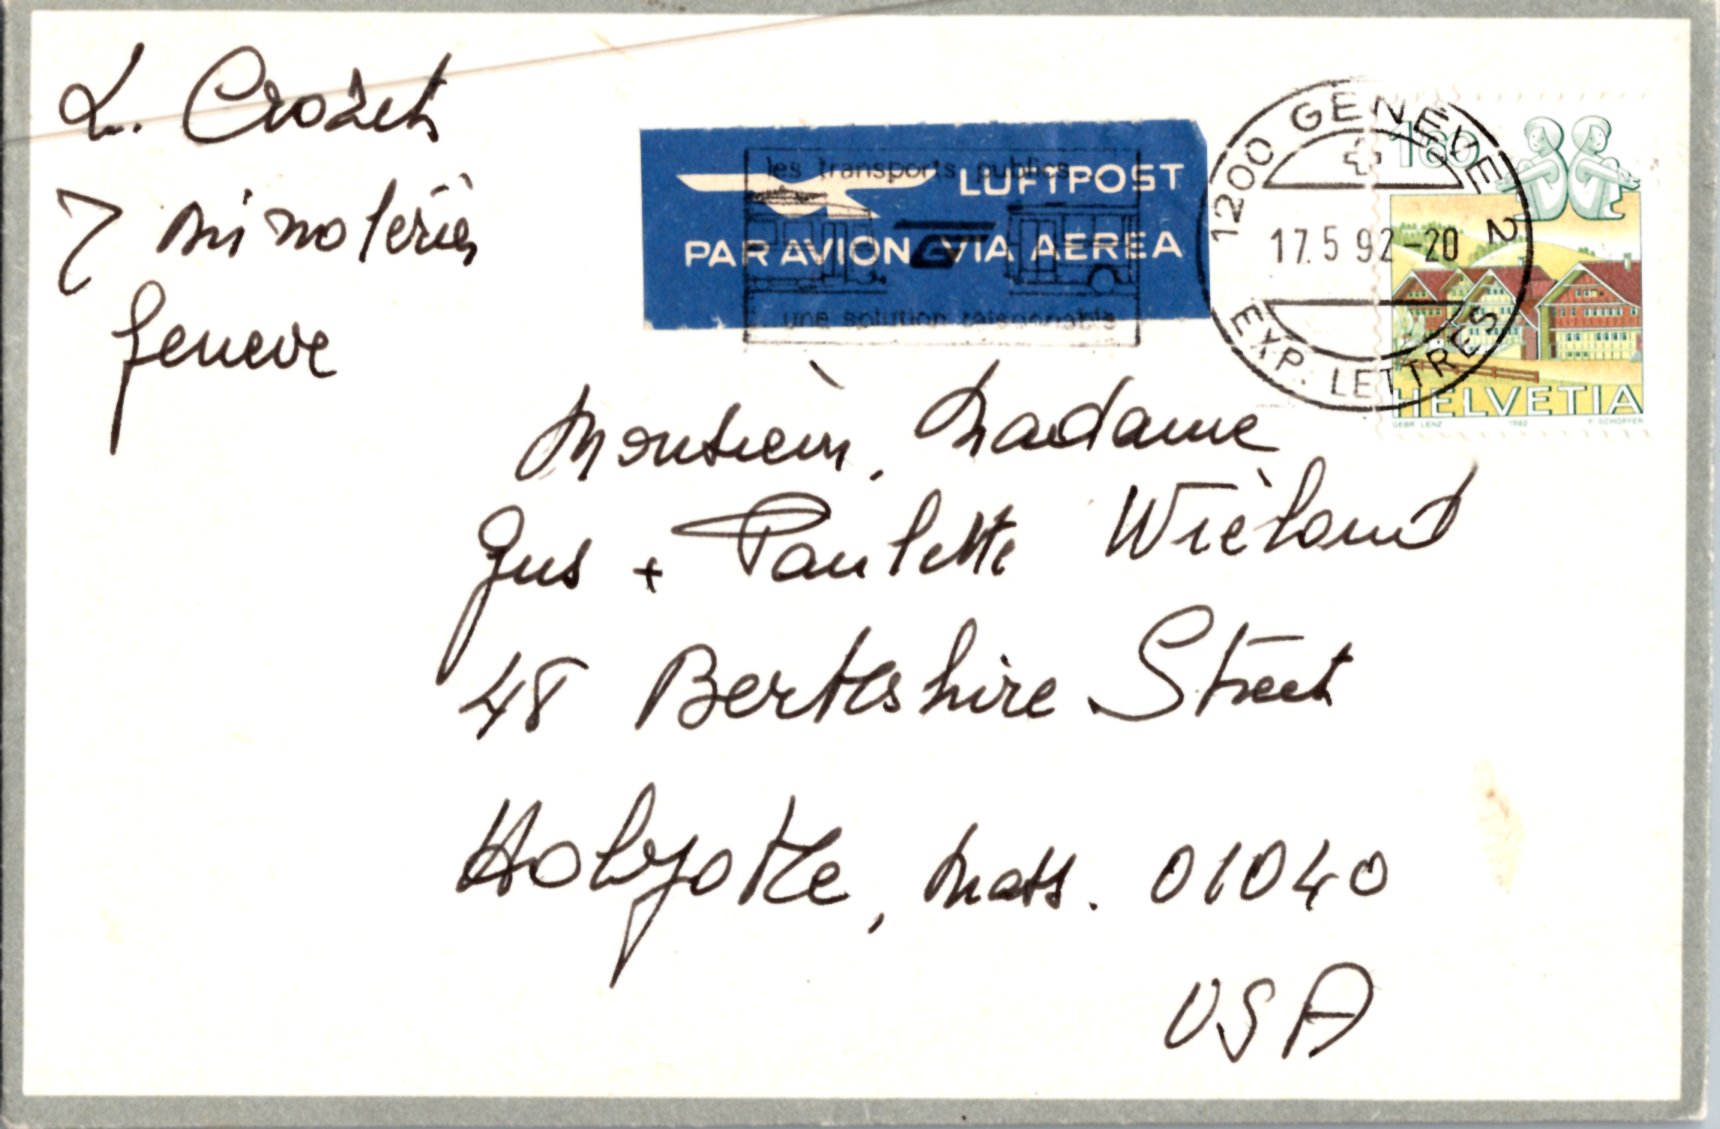 L. Crozet
7 Minoteries
Geneve
les transports publics
LUFTPOST
PAR AVION VIA AEREA
une solution raisonnable
1200 GENÈVE 2
17.5 92-20
EXP. LETTRES
160
HELVETIA
GEBR. LENZ 1982 P. SCHOPFER
Monsieur, Madame
Gus + Paulette Wièland
48 Berkshire Street
Holyoke, Mass. 01040
USA